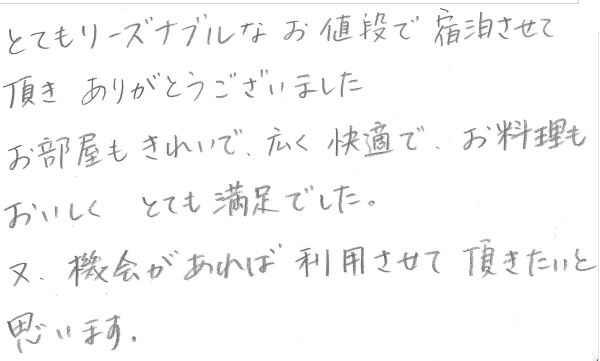 とてもリーズナブルな お値段で 宿泊させて
頂き ありがとうございました
お部屋も きれいで、広く 快適で、お料理も
おいしく とても 満足でした。
又、機会があれば 利用させて 頂きたいと
思います。